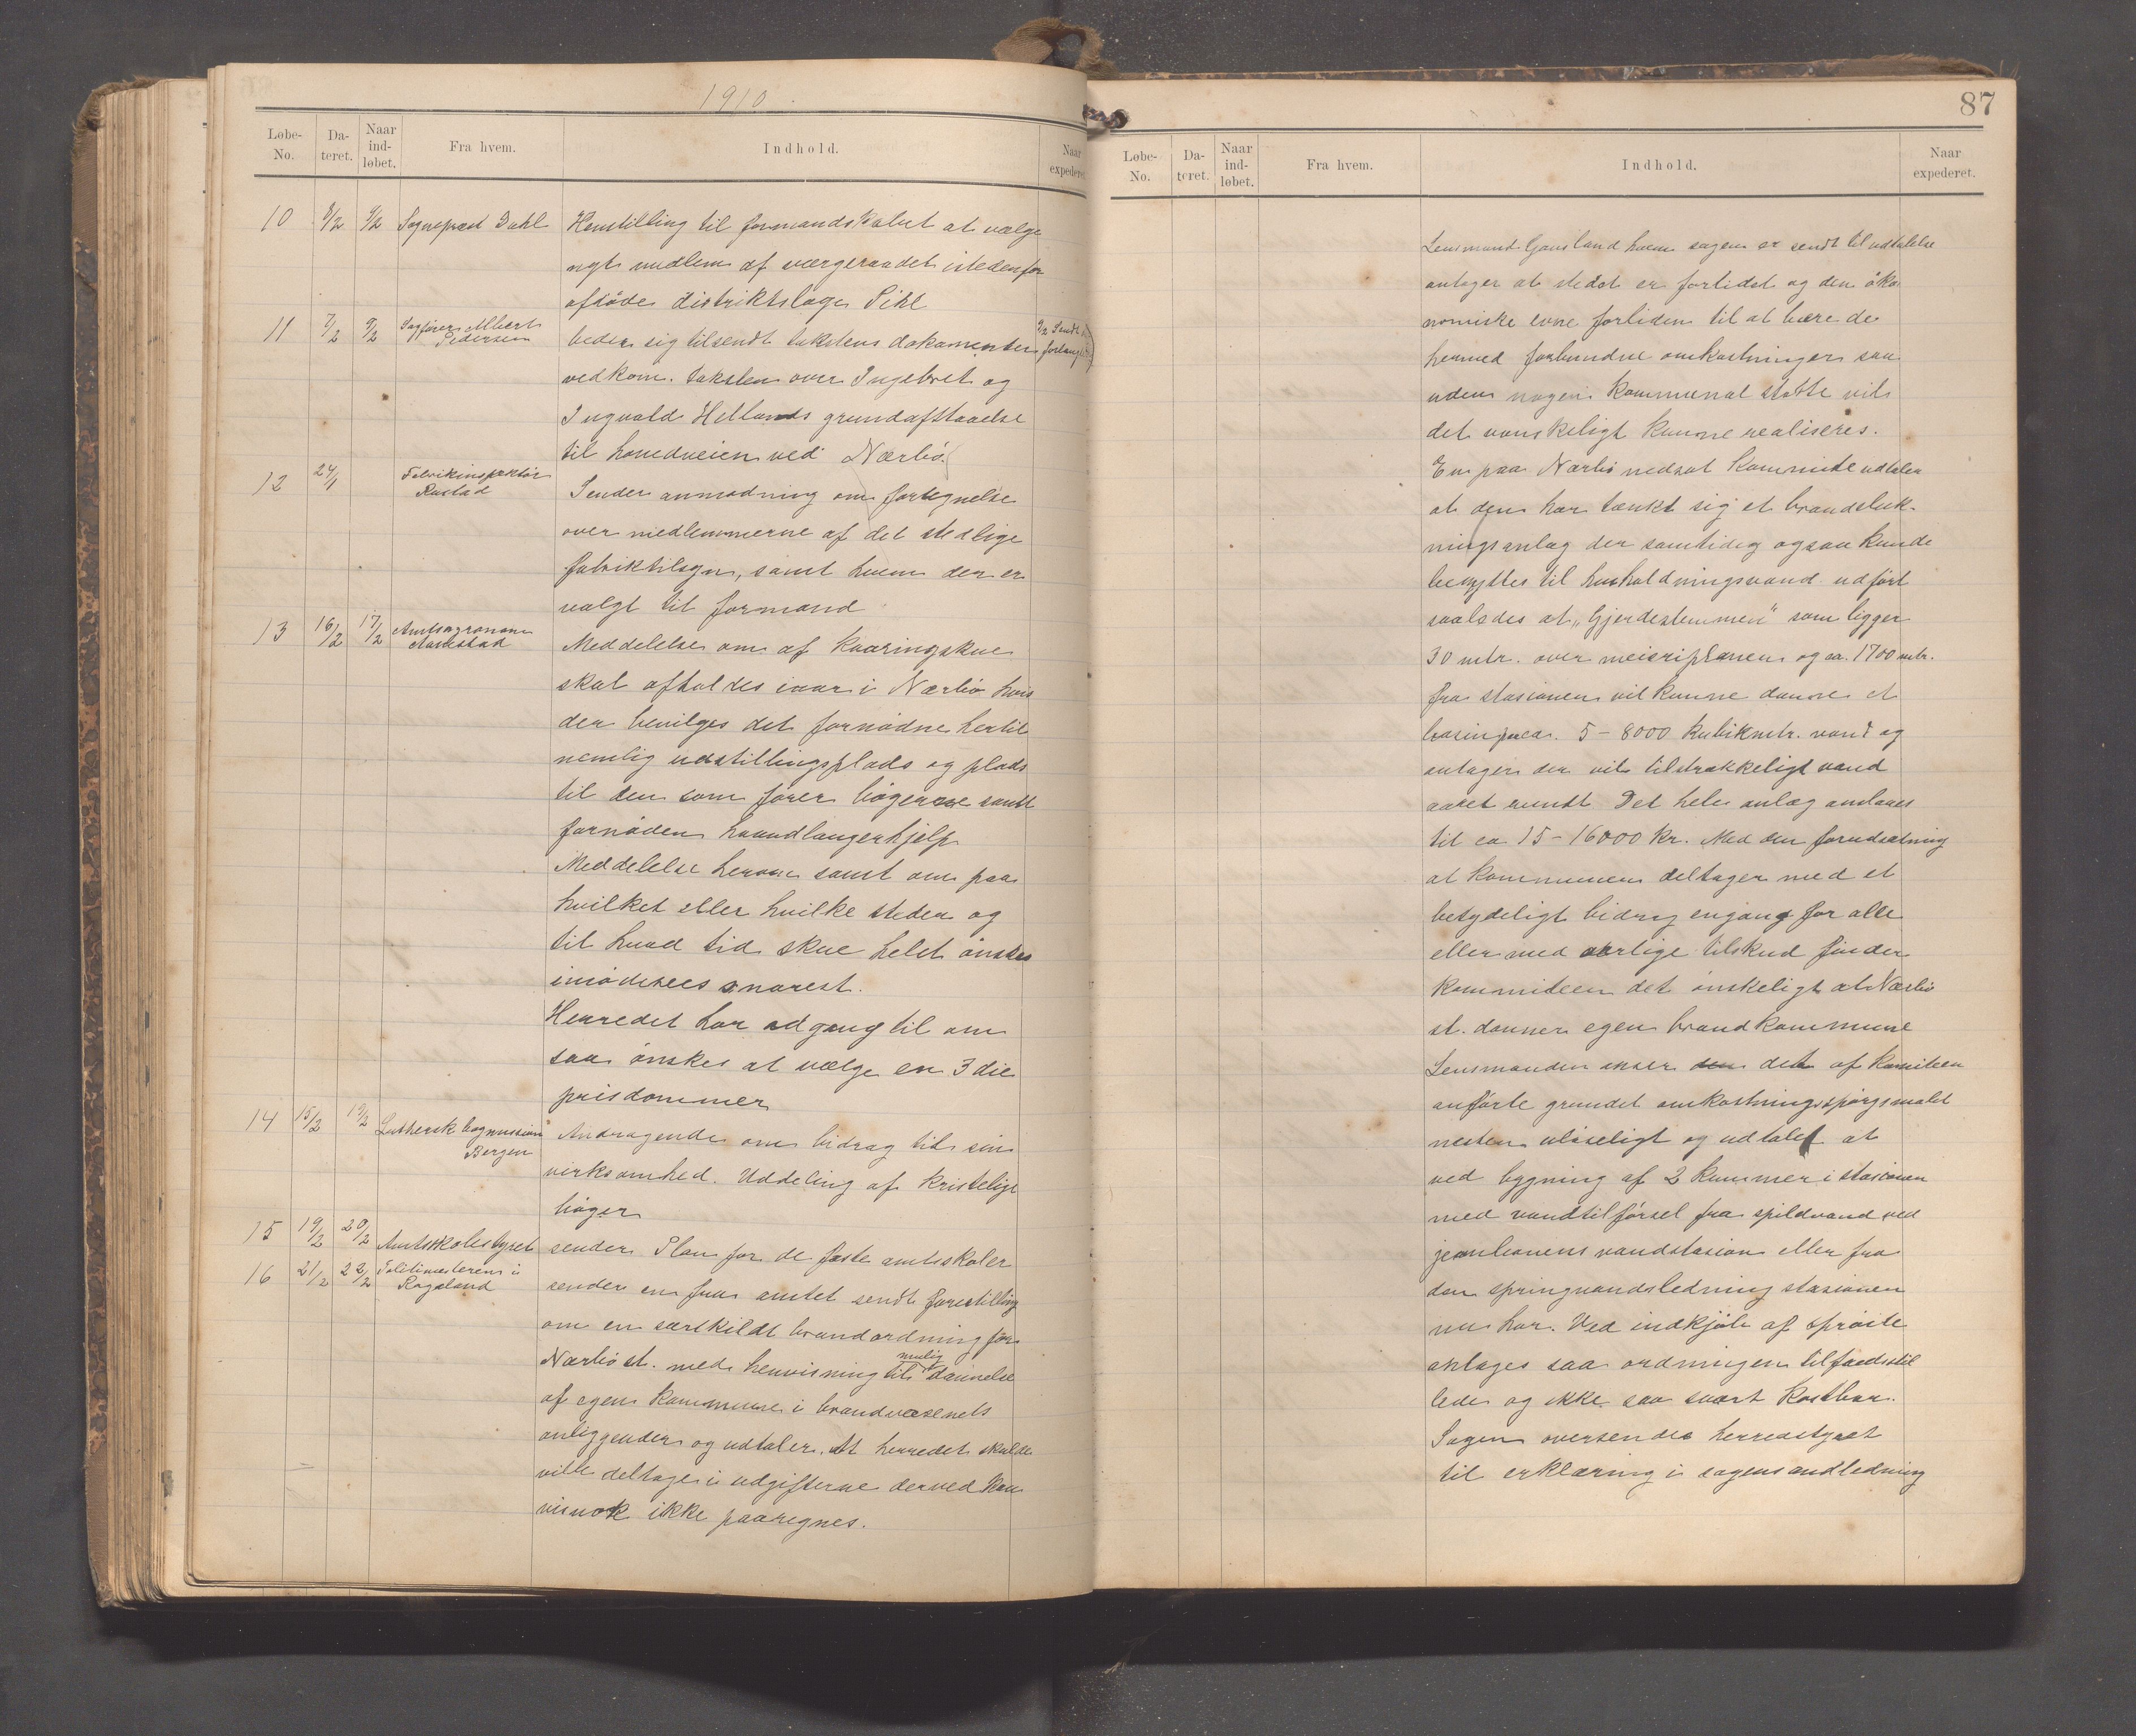 1910
Løbe-No. Da-teret. Naar ind-løbet. Fra hvem. Indhold. Naar expederet
10 8/2 9/2 Sognepræst Dahl Henstilling til formandskabet at vælge
nyt medlem af værgeraadet istedenfor
afdöde distriktslæge Pihl
11 7/2 9/2 Sagfører Albert Pedersen beder sig tilsendt takstens dokumenter 9/2 Sendt
vedkom. taksten over Ingebret og
Ingvald Hellands grundafstaaelse
til hovedveien ved Nærbö
12 24/1 Fabrikinspektör Rustad Sender anmodning om fortegnelse
over medlemmerne af det stedlige
fabriktilsyn, samt hvem der er
valgt til formand
13 16/2 17/2 Amtsagronom Aarrestad Meddelelse om at kaaringskue
skal afholdes iaar i Nærbö hvis
der bevilges det fornödne hertil
nemlig udstillingsplads og plads
til den som förer bögerne samt
fornöden haandlangerhjelp
Meddelelse herom samt om paa
hvilket eller hvilke steder og
til hvad tid skue helst önskes
imödesees snarest.
Herredet har adgang til om
saa önskes at vælge en 3die
prisdommer
14 15/2 19/2 Luthersk bogmission Bergen Andragende om bidrag til sin
virksomhed. Uddeling af kristelige
böger
15 19/2 20/2 Amtsskolestyret sender Plan for de faste amtsskoler
16 21/2 22/2 Politimesteren i Rogaland sender en fra amtet sendt forestilling
om en særskildt brandordning for
Nærbö st. med henvisning til mulig dannelse
af egen kommune i brandvæsenets
anliggender og udtaler. At herredet skulde
ville deltage i udgifterne derved kan
visnok ikke paaregnes.
87
Løbe-No. Da-teret. Naar ind-løbet. Fra hvem. Indhold. Naar expederet.
Lensmand Gausland hvem sagen er sendt til udtalelse
antager at stedet er forlidet og den öko
nomiske evne forliden til at bære de
hermed forbundne omkostninger saa
uden nogen kommunal stötte vil
det vanskeligt kunne realiseres.
En paa Nærbö nedsat kommite udtaler
at den har tænkt sig et brandsluk-
ningsanlæg der samtidig ogsaa kunde
benyttes til husholdningsvand udfört
saaledes at "Gjerdestemmen" som ligger
30 mtr. over meieriplanen og ca. 1700 mtr.
fra stasionen vil kunne danne et
basin paa ca. 5-8000 kubikmtr. vand og
antager der vil tilstrækkeligt vand
aaret rundt Det hele anlæg anslaaes
til ca 15-16000 kr. Med den forudsætning
at kommunen deltager med et
betydeligt bidrag engang for alle
eller med aarlige tilskud finder
kommiteen det önskeligt at Nærbö
st. danner egen brandkommune
Lensmanden anser den det af komiteen
anförte grundet omkostningsspörgsmalet
nesten ulöseligt og udtaler at
ved bygning af 2 kummer i stasionen
med vandtilförsel fra spildvand ved
jernbanens vandstasion eller fra
den springvandsledning stasionen
nu har. Ved indkjöb af spröite
antages saa ordningen tilfredsstil
lede og ikke saa svært kostbar.
Sagen oversendes herredstyret
til erklæring i sagens andledning